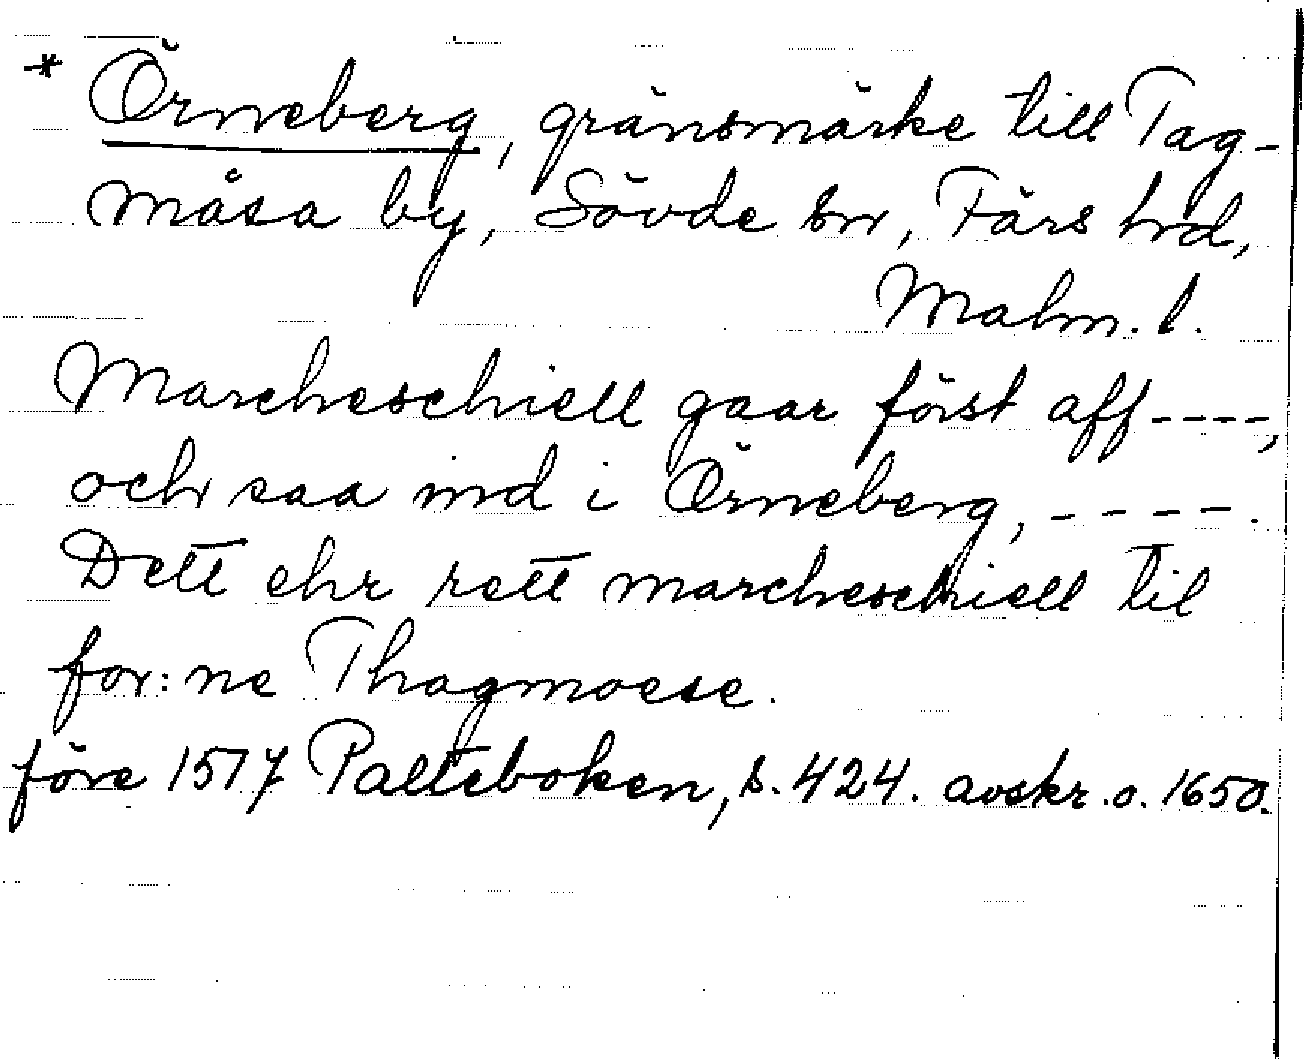 * Örneberg, gränsmärke till Tag-
måsa by, Sövde sn, Färs hd,
Malm. l.
Marcheschiell gaar först aff ----,
och saa ind i Örneberg, -----.
Dett ehr rett marcheschiell til
for:ne Thagmoese.
före 1517 Palteboken, s. 424. avskr. o. 1650.